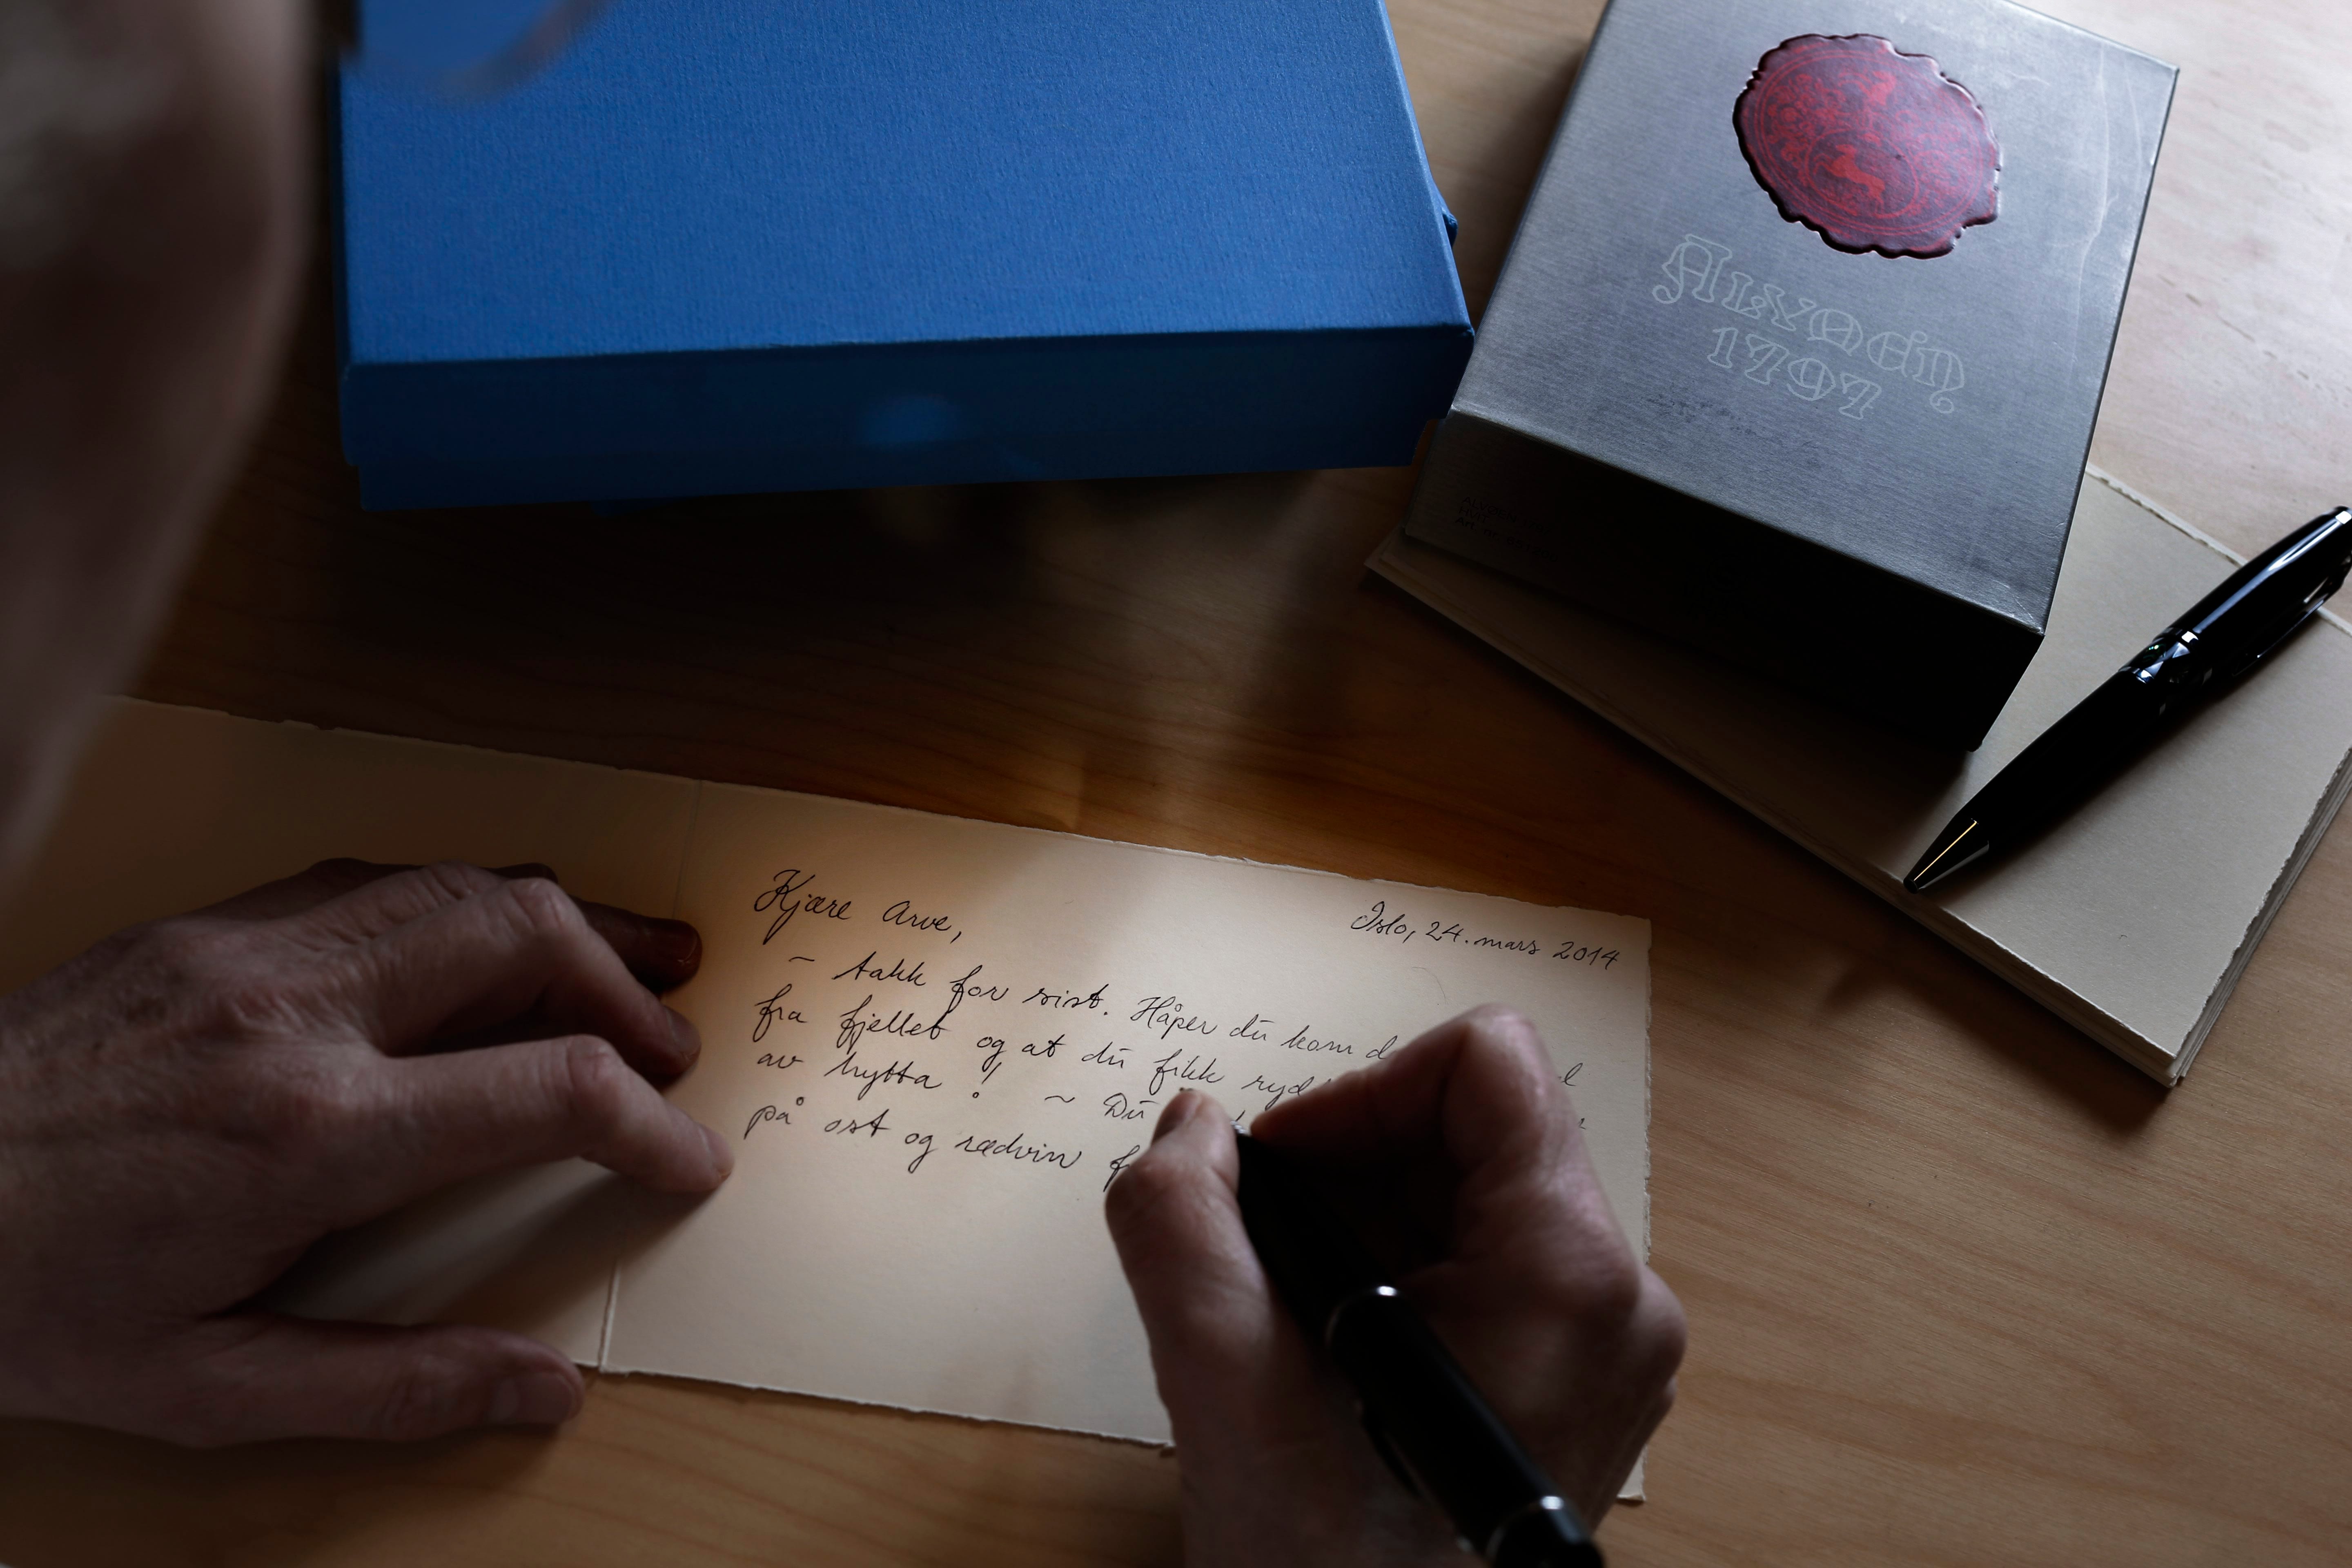 Alvøen
1797
Oslo, 24. mars 2014
Kjære Arve,
~ takk for sist. Håper du kom
fra fjellet og at du fikk
av hytta! ~ Du
på ost og rødvin